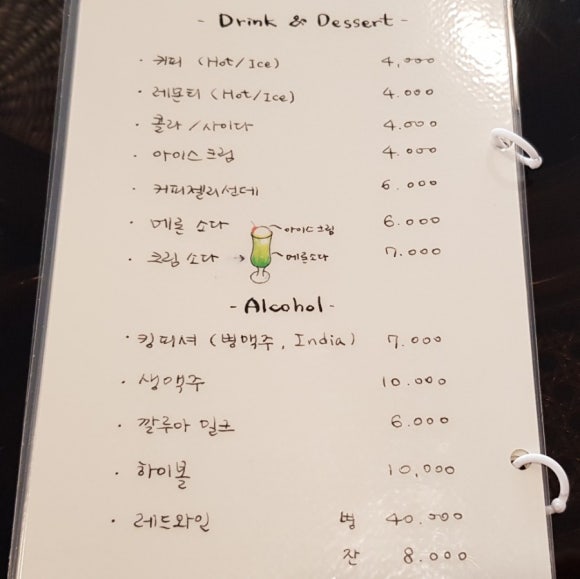 - Drink & Dessert -
· 커피 (Hot/Ice) 4,000
· 레몬티 (Hot/Ice) 4.000
· 콜라 / 사이다 4.000
· 아이스크림 4.000
· 커피젤리선데 6.000
· 메론 소다 6.000
아이스크림
· 크림 소다 → 7.000
메론소다
- Alcohol -
· 킹피셔 (병맥주, India) 7.000
· 생맥주 10.000
· 깔루아 밀크 6.000
· 하이볼 10,000
· 레드와인 병 40.000
잔 8.000